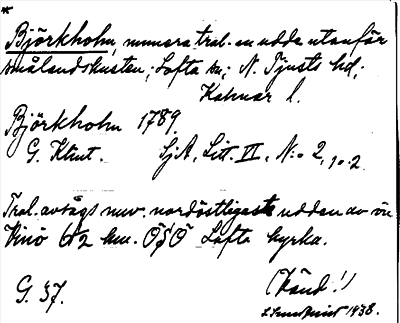 *
Björkholm, numera trol. en udde utanför
smålandskusten; Lofta sn; N. Tjusts hd;
Kalmar l.
Björkholm 1789.
G. Klint. SjA, Litt. II, N:o 2, 1o.2.
Trol. avsågs nuv. nordöstligaste udden av ön
Vinö 6 1/2 km. ÖSÖ Lofta kyrka.
G. 37. (Känd!)
1938.